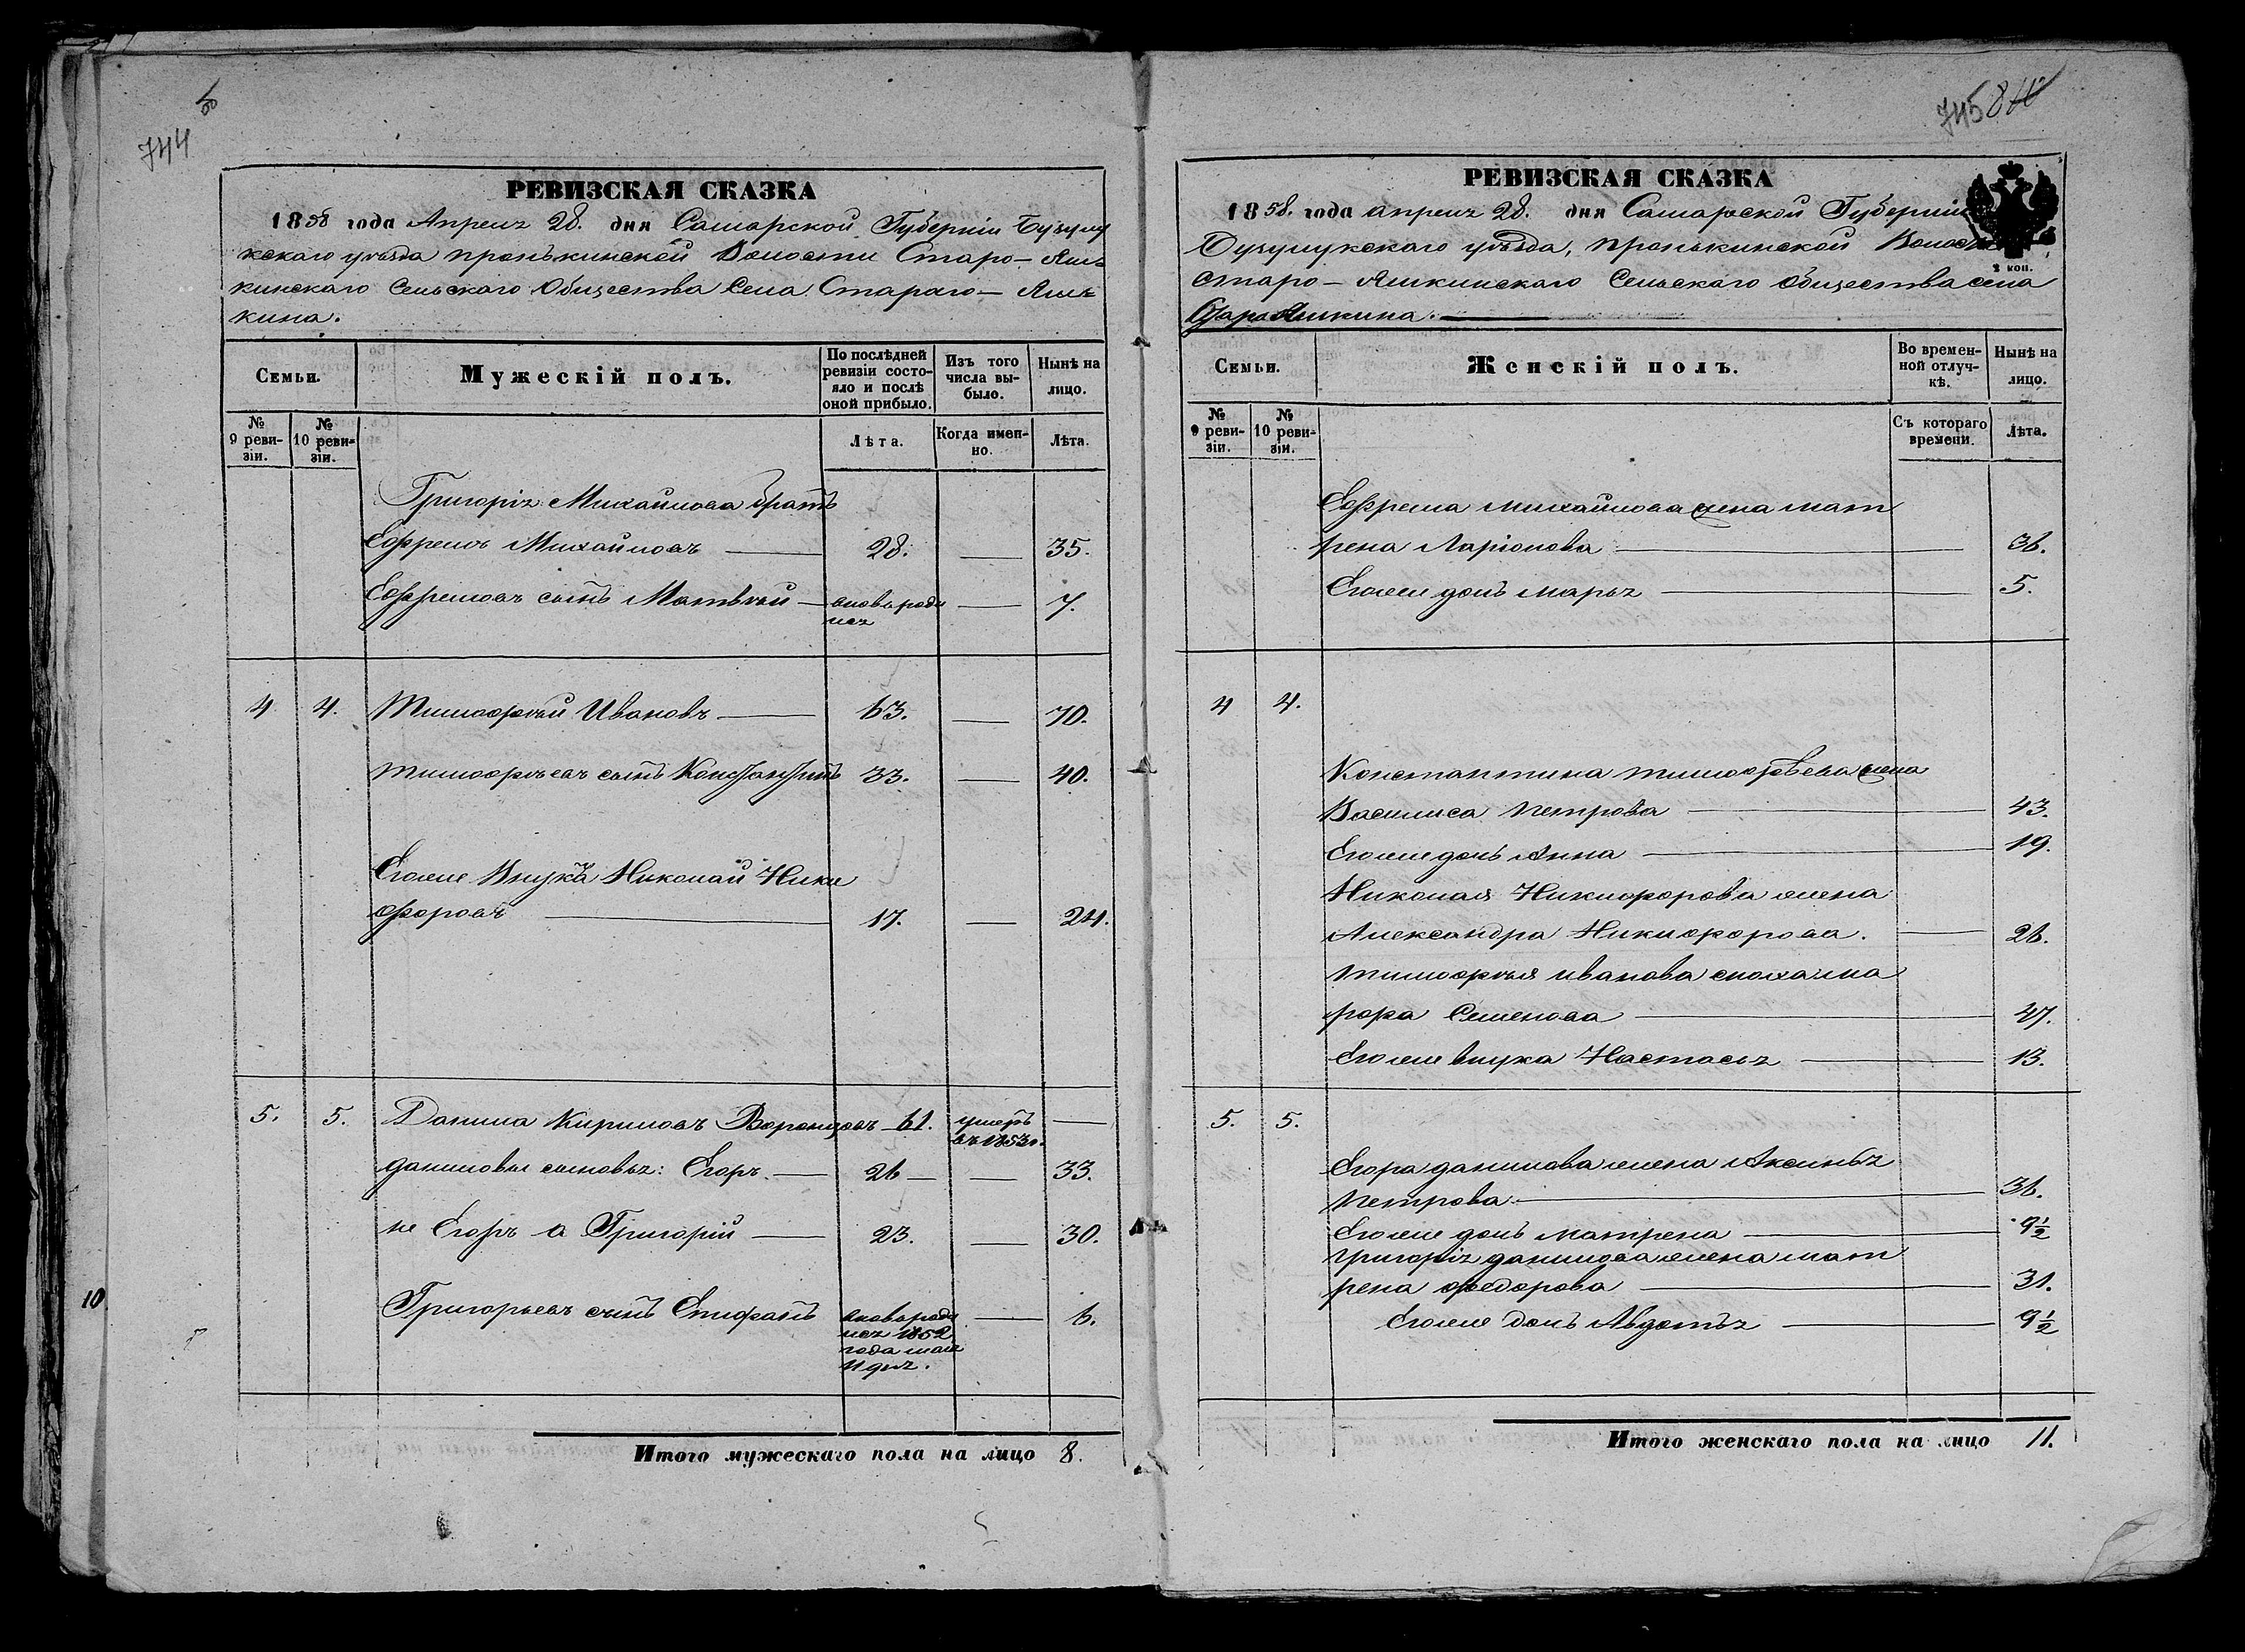 744
РЕВИЗСКАЯ СКАЗКА
1858 года Апреля 28. дня Самарской Губернiи Бузулу
кскаго уѣзда пронькинской Волости Старо-Яш
кинскаго Сельскаго Общества Села Стараго-Яш
кина.
Семьи.
Мужескiй полъ.
По послѣдней ревизiи состояло и послѣ оной прибыло.
Изъ того числа выбыло.
Нынѣ на лицо.
№ 9 ревизiи.
№ 10 ревизiи.
Лѣта.
Когда именно.
Лѣта.
Григорiя Михайлова братъ
Ефремъ Михайловъ 28. 35.
Ефремовъ сынъ Матвѣй вновь роди 7.
лся
4 4. Тимофѣй Ивановъ 63. 70.
Тимофѣевъ сынъ Константинъ 33. 40.
Егоже Внукъ Николай Ники
форовъ 17. 24.
5. 5. Данила Кириловъ Воронцовъ 61. умеръ
въ 1853 г.
даниловы сыновья: Егоръ. 26 33.
не Егоръ а Григорiй 23. 30.
Григорьевъ сынъ Епифанъ вновь роди 6.
лся 1852
года мая
11 дня.
Итого мужескаго пола на лицо 8.
10
745
РЕВИЗСКАЯ СКАЗКА
1858. года апреля 28. дня Самарской Губернiи
Бузулукскаго уѣзда, пронькинской Волости,
старо-Яшкинскаго Сельскаго общества села
Стара Яшкина.
2 коп.
Семьи.
Женскiй полъ.
Во временной отлучкѣ.
Нынѣ на лицо.
№ 9 ревизiи.
№ 10 ревизiи.
Съ котораго времени.
Лѣта.
Ефрема михайлова жена мат
рена Ларiонова 36.
Егоже дочь марья 5.
4 4.
Константина тимофѣева жена
Василиса петрова 43.
Егоже дочь Анна 19.
Николая Никифорова жена
Александра Никифорова. 26.
тимофѣя иванова сноха ма
рфа Семенова 47.
Егоже внука Настасья 13.
5. 5.
Егора данилова жена Аксинья
петрова 36.
Егоже дочь матрена 9½
григорiя данилова жена мат
рена федорова 31.
Егоже дочь Авдотья 9½
Итого женскаго пола на лицо 11.